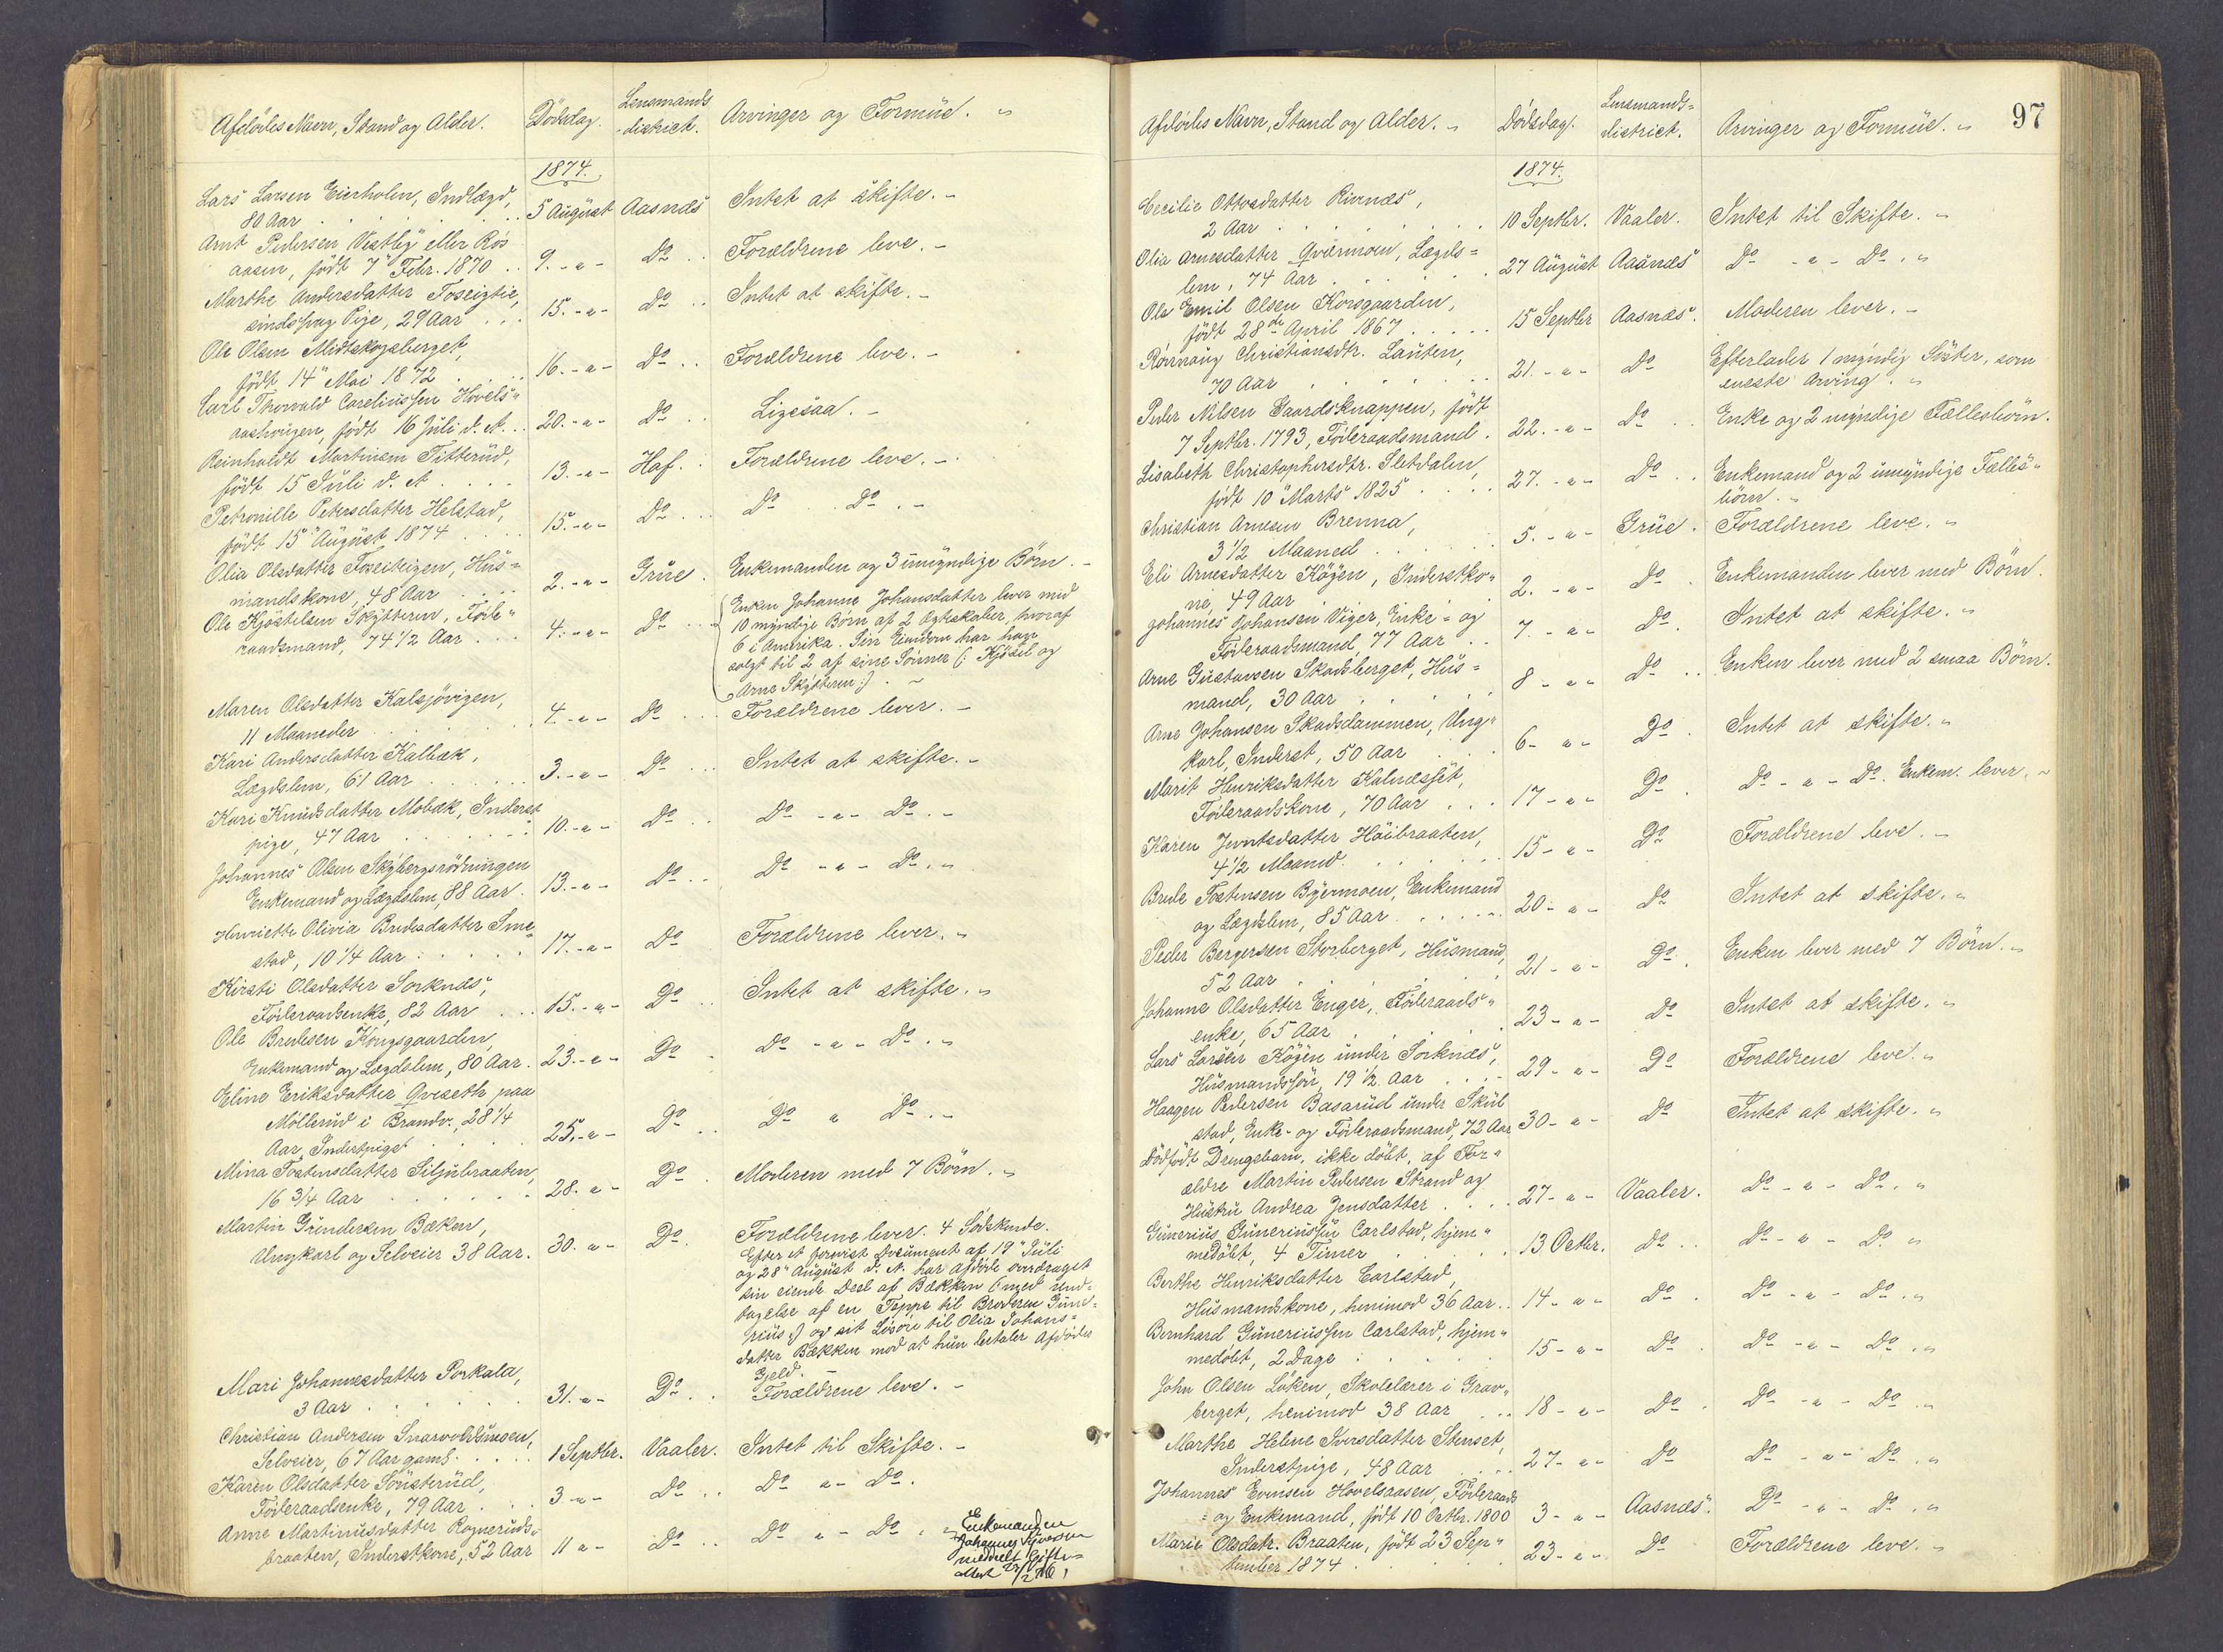 Afdödes Navn, Stand og Alder. Dödsdag. Lensmands-district. Arvinger og Formue. "
1874.
Lars Larsen Eierholen, Indlægd,
80 Aar . . . 5 August Aasnæs Intet at skifte. -
Arnt Pedersen Vestby eller Rös
aasen, födt 7" Febr. 1870 . . 9. - " - Do . . Forældrene leve. -
Marthe Andersdatter Foseigtie,
sindssvag Pige, 29 Aar . . . 15. - " - Do . . Intet at skifte. -
Ole Olsen Midtskogsberget,
födt 14" Mai 1872 . . . 16. - " - Do . . Forældrene leve. -
Carl Thorvald Carelinssen Hovels"
aashougen, födt 16 Juli d. A. . . 20. - " - Do . . Ligesaa. -
Reinholdt Martinsen Titterud,
födt 15 Juli d. A . . . . 13. - " - Hof. . Forældrene leve. -
Petronille Petersdatter Helstad,
födt 15" August 1874 . . . . 15. - " - Do . . . Do . . Do . -
Olia Olsdatter Foseiteigen, Hus=
mandskone, 48 Aar . . . . 2. - " - Grue . Enkemanden og 3 umyndige Börn. -
Ole Kjöstelsen Skytteren, Föde"
raadsmand, 74 1/2 Aar . . . 4. - " - Do . . . Enken Johanne Johansdatter lever med
10 myndige Börn af 2 Ægteskaber, hvoraf
6 i Amerika. Sin Eiendom har han
solgt til 2 af sine Sönner (: Kjöstel og
Arne Skytteren :) . -
Maren Olsdatter Kalsjövigen,
11 Maaneder . . . 4. - " - Do . . . Forældrene lever. -
Kari Andersdatter Kalbæk,
Lægdslem, 61 Aar . . . . 3. - " - Do . . . Intet at skifte. -
Kari Knudsdatter Mobæk, Inderst
pige, 47 Aar . . . . 10. - " - Do . . Do - " - Do . -
Johannes Olsen Skybergsrödningen
Enkemand og Lægdslem, 88 Aar . 13. - " - Do . . Do - " - Do . "
Henriette Olivia Bredesdatter Sme
stad, 10 1/4 Aar . . . . 17. - " - Do Forældrene lever. "
Kirsti Olsdatter Sorknæs,
Föderaadsenke, 82 Aar . . . 15. - " - Do . . Intet at skifte. "
Ole Bredesen Kongsgaarden,
Enkemand og Lægdslem, 80 Aar . 23. - " - Do . Do - " - Do . "
Eline Eriksdatter Qveseth paa
Möllerud i Brandv., 28 1/4
Aar, Inderstpige . . . 25. - " - Do . . Do " Do . . -
Mina Tostensdatter Siljubraaten,
16 3/4 Aar . . . . 28. " - Do . Moderen med 7 Börn. "
Martin Gundersen Bæken,
Ungkarl og Selveier 38 Aar. 30. " - Do . Forældrene lever. 4 Södskende.
Efter et forevist Document af 19" Juli
og 28" August d. A. har Afdöde overdraget
sin eiende Deel af Bækken (: med und=
tagelse af en Teppe til Broderen Gune=
rius :) og sit Lösöre til Olia Johans=
datter Bækken mod at hun betaler Afdödes
Gjeld.
Mari Johannesdatter Porkala,
3 Aar . . . . 31. - " - Do . . Forældrene leve. -
Christian Andersen Snarvoldmoen,
Selveier, 67 Aar gaml. . . . . 1 Septbr. Vaaler. Intet til Skifte. -
Karen Olsdatter Sönsterud,
Föderaadsenke, 79 Aar . . . 3 - " - Do . . Do " - Do .
Anne Martinusdatter Rogneruds-
braaten, Inderstkone, 52 Aar 11 " - Do . . Do " - Do . "
Enkemanden
Johannes
meddelt Gifte=
1874.
97
Afdödes Navn, Stand og Alder. " Dödsdag. Lensmands=district. Arvinger og Formue. "
1874.
Cecilie Ottosdatter Rivnæs,
2 Aar . . . . 10 Septbr. Vaaler. Intet til Skifte. "
Olia Arnesdatter Qværnmoen, Lægds=
lem, 74 Aar . . . 27 August Aasnæs Do - " - Do . "
Ole Emil Olsen Korsgaarden,
födt 28de April 1867 . . . . . 15 Septbr Aasnæs. Moderen lever. -
Rönnaug Christiansdtr. Lauten,
70 Aar . . . . 21. - " - Do Efterlader 1 myndig Söster, som
eneste Arving. "
Peder Nilsen Gaardsknappen, födt
7 Septbr. 1793, Föderaadsmand . 22. - " - Do . . Enke og 2 myndige Fællesbörn.
Lisabeth Christophersdtr. Sletdalen,
födt 10" Marts 1825 . . . . 27. - " - Do . . Enkemand og 2 umyndige Fælles"
börn. "
Christian Arnesen Brenna,
3 1/2 Maaned . . . . 5. - " - Grue . Forældrene leve. "
Eli Arnesdatter Köyen, Inderstko"
ne, 49 Aar . . 2. - " - Do . Enkemanden lever med Börn.
Johannes Johansen Viger, Enke= og
Föderaadsmand, 77 Aar . . 7. - " - Do . Intet at skifte. "
Arne Gustavsen Skadsberget, Hus=
mand, 30 Aar . . . 8 - " - Do . . Enken lever med 2 smaa Börn.
Arne Johansen Skadsdammen, Ung"
karl, Inderst, 50 Aar . . 6 - " - Do . Intet at skifte. "
Marit Henriksdatter Kalnæsset,
Föderaadskone, 70 Aar . . . 17 - " - Do . Do - " - Do . Enkem. lever. "
Karen Jerntsdatter Höibraaten,
4 1/2 Maaned . . . . 15 - " - Do Forældrene leve. -
Brede Tostensen Byermoen, Enkemand
og Lægdslem, 85 Aar . . . . . 20 - " - Do Intet at skifte. "
Peder Bergersen Storberget, Husmand,
52 Aar . . . 21 - " - Do . Enken lever med 7 Börn. "
Johanne Olsdatter Enger, Föderaads"
enke, 65 Aar . . . . 23 - " - Do Intet at skifte. "
Lars Larsen Köyen under Sorknæs,
Husmandssön, 19 1/2 Aar . . . 29 - " - Do Forældrene leve. "
Haagen Pedersen Basarud under Skul
stad, Enke= og Föderaadsmand, 72 Aar 30 - " - Do Intet at skifte. "
Dödfödt Drengebarn, ikke döbt, af For"
ældre Martin Pedersen Strand og
Hustru Andrea Jensdatter . . . . 27 - " - Vaaler. Do - " - Do . "
Gunerius Gunerinssen Carlstad, hjem"
medöbt, 4 Timer . . . 13 Octbr. Do . . Do - " - Do . "
Berthe Henriksdatter Carlstad,
Husmandskone, henimod 36 Aar . . 14 - " - Do . Do - " - Do . "
Bernhard Guneriussen Carlstad, hjem"
medöbt, 2 Dage . . . 15 - " - Do . Do - " - Do . "
John Olsen Löken, Skolelærer i Grav"
berget, henimod 38 Aar . . . 18 - " - Do . Do - " - Do . "
Marthe Helene Iversdatter Stenset,
Inderstpige, 48 Aar . . . 27 - " - Do Do - " - Do . "
Johannes Evensen Hovelsaasen, Föderaads
= og Enkemand, födt 10 Octbr. 1800 3 - " - Aasnæs. Do - " - Do . "
Marie Olsdatr. Braaten, födt 23 Sep"
tember 1874 . . . 23 - " - Do Forældrene leve. "